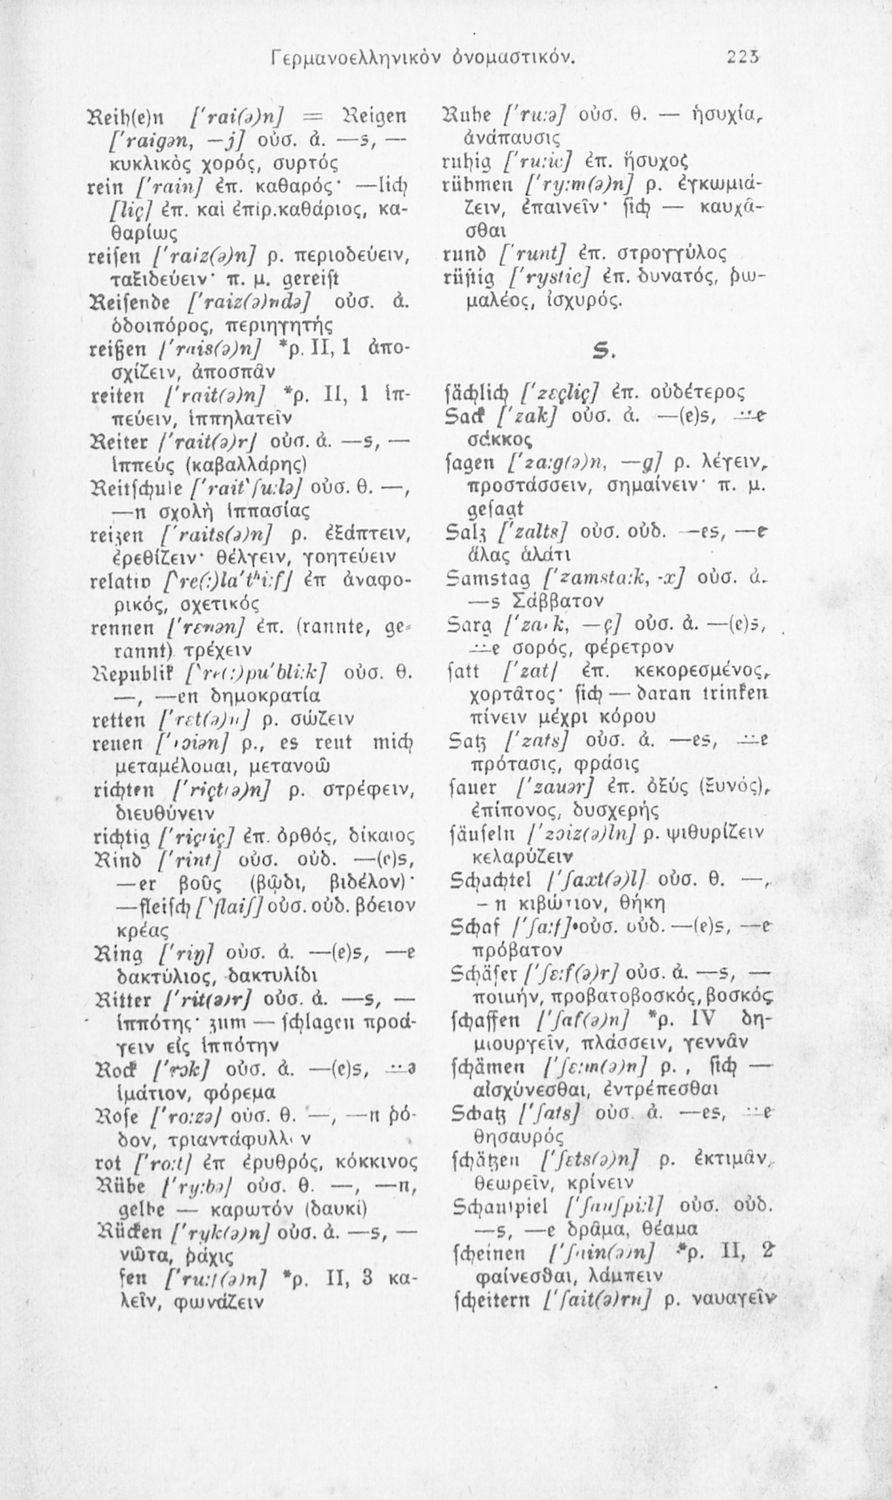 Γερμανοελληνικὸν ὀνομαστικόν. 223
Reih(e)n ['rai(ə)n] = Reigen
['raigən, —j] οὐσ. ἀ. —s, —
κυκλικὸς χορός, συρτός
rein ['rain] ἐπ. καθαρός· —lich
[liç] ἐπ. καὶ ἐπίρ. καθάριος, κα-
θαρίως
reisen ['raiz(ə)n] ρ. περιοδεύειν,
ταξιδεύειν· π. μ. gereist
Reisende ['raiz(ə)ndə] οὐσ. ἀ.
ὁδοιπόρος, περιηγητής
reißen ['rais(ə)n] *ρ. II, 1 ἀπο-
σχίζειν, ἀποσπᾶν
reiten ['rait(ə)n] *ρ. II, 1 ἱπ-
πεύειν, ἱππηλατεῖν
Reiter ['rait(ə)r] οὐσ. ἀ. —s, —
ἱππεύς (καβαλλάρης)
Reitschule ['rait'ʃu:lə] οὐσ. θ. —,
—n σχολὴ ἱππασίας
reizen ['raits(ə)n] ρ. ἐξάπτειν,
ἐρεθίζειν· θέλγειν, γοητεύειν
relativ [ˋre(:)la'tʰi:f] ἐπ ἀναφο-
ρικός, σχετικός
rennen ['rɛnən] ἐπ. (rannte, ge-
rannt) τρέχειν
Republik [ˋre(:)pu'bli:k] οὐσ. θ.
—, —en δημοκρατία
retten ['rɛt(ə)n] ρ. σώζειν
reuen ['rɔiən] ρ., es reut mich
μεταμέλομαι, μετανοῶ
richten ['riçt(ə)n] ρ. στρέφειν,
διευθύνειν
richtig ['riçtiç] ἐπ. ὀρθός, δίκαιος
Rind ['rint] οὐσ. οὐδ. —(e)s,
—er βοῦς (βῷδι, βιδέλον)·
—fleisch [ˋflaiʃ] οὐσ. οὐδ. βόειον
κρέας
Ring ['riŋ] οὐσ. ἀ. —(e)s, —e
δακτύλιος, δακτυλίδι
Ritter ['rit(ə)r] οὐσ. ἀ. —s, —
ἱππότης· zum — schlagen προά-
γειν εἰς ἱππότην
Rock ['rɔk] οὐσ. ἀ. —(e)s, —̈e
ἱμάτιον, φόρεμα
Rose ['ro:zə] οὐσ. θ. —, —n ῥό-
δον, τριαντάφυλλον
rot ['ro:t] ἐπ ἐρυθρός, κόκκινος
Rübe ['ry:bə] οὐσ. θ. —, —n,
gelbe — καρωτόν (δαυκί)
Rücken ['ryk(ə)n] οὐσ. ἀ. —s, —
νῶτα, ῥάχις
fen ['ru:f(ə)n] *ρ. II, 3 κα-
λεῖν, φωνάζειν
Ruhe ['ru:ə] οὐσ. θ. — ἡσυχία,
ἀνάπαυσις
ruhig ['ru:iç] ἐπ. ἥσυχος
rühmen ['ry:m(ə)n] ρ. ἐγκωμιά-
ζειν, ἐπαινεῖν· sich — καυχᾶ-
σθαι
rund ['runt] ἐπ. στρογγύλος
rüstig ['rystiç] ἐπ. δυνατός, ῥω-
μαλέος, ἰσχυρός.
S.
sächlich ['zɛçliç] ἐπ. οὐδέτερος
Sack ['zak] οὐσ. ἀ. —(e)s, —̈e
σάκκος
sagen ['za:g(ə)n, —g] ρ. λέγειν,
προστάσσειν, σημαίνειν· π. μ.
gesagt
Salz ['zalts] οὐσ. οὐδ. —es, —e
ἅλας ἁλάτι
Samstag ['zamsta:k, -x] οὐσ. ἀ.
—s Σάββατον
Sarg ['zark, —ç] οὐσ. ἀ. —(e)s,
—̈e σορός, φέρετρον
satt ['zat] ἐπ. κεκορεσμένος,
χορτᾶτος· sich — daran trinken
πίνειν μέχρι κόρου
Satz ['zats] οὐσ. ἀ. —es, —̈e
πρότασις, φράσις
sauer ['zauər] ἐπ. ὀξύς (ξυνός),
ἐπίπονος, δυσχερής
säuseln ['zɔiz(ə)ln] ρ. ψιθυρίζειν
κελαρύζειν
Schachtel ['ʃaxt(ə)l] οὐσ. θ. —,
—n κιβώτιον, θήκη
Schaf ['ʃa:f] οὐσ. οὐδ. —(e)s, —e
πρόβατον
Schäfer ['ʃɛ:f(ə)r] οὐσ. ἀ. —s, —
ποιμήν, προβατοβοσκός, βοσκός
schaffen ['ʃaf(ə)n] *ρ. IV δη-
μιουργεῖν, πλάσσειν, γεννᾶν
schämen ['ʃɛ:m(ə)n] ρ. , sich —
αἰσχύνεσθαι, ἐντρέπεσθαι
Schatz ['ʃats] οὐσ. ἀ. —es, —̈e
θησαυρός
schätzen ['ʃɛts(ə)n] ρ. ἐκτιμᾶν,
θεωρεῖν, κρίνειν
Schauspiel ['ʃauʃpi:l] οὐσ. οὐδ.
—s, —e δρᾶμα, θέαμα
scheinen ['ʃain(ə)n] *ρ. II, 2
φαίνεσθαι, λάμπειν
scheitern ['ʃait(ə)rn] ρ. ναυαγεῖν